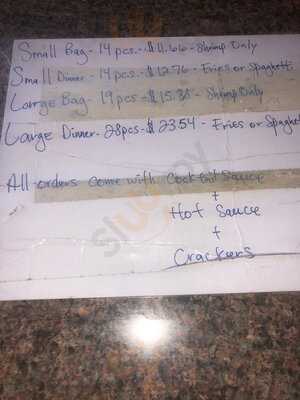 Small Bag - 14 pcs. - $11.66 - Shrimp Only
Small Dinner - 14 pcs - $12.76 - Fries or Spaghetti
Large Bag - 19 pcs - $15.38 - Shrimp Only
Large Dinner - 28 pcs - $23.54 - Fries or Spaghet
All orders come with Cocktail Sauce
+
Hot Sauce
+
Crackers